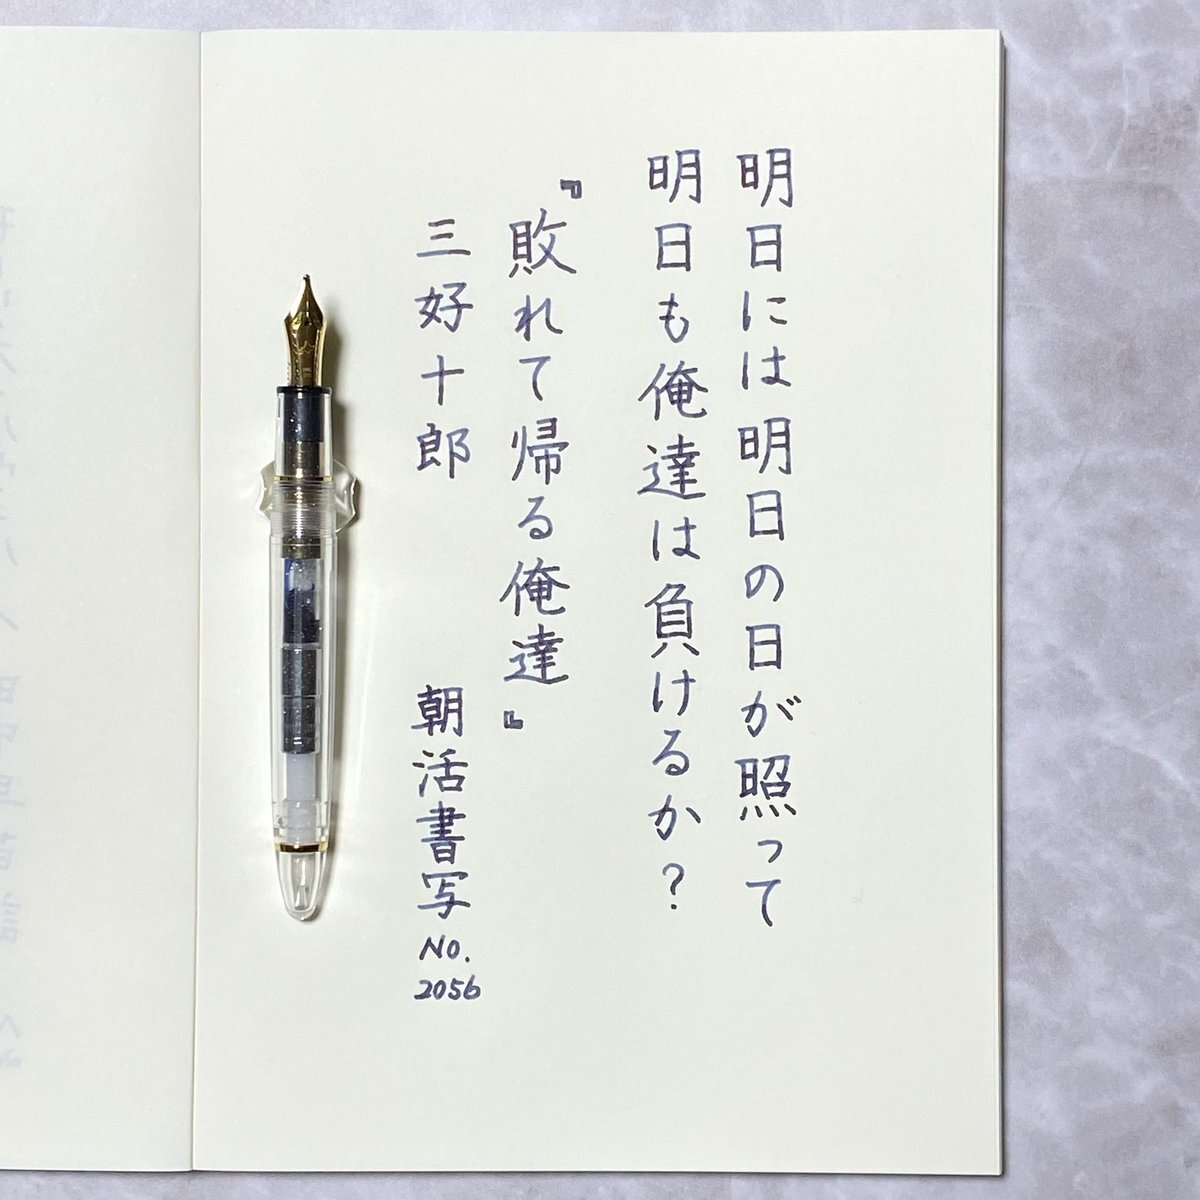 明日には明日の日が照って
明日も俺達は負けるか?
『敗れて帰る俺達』
三好十郎
朝活書写
No.
2056